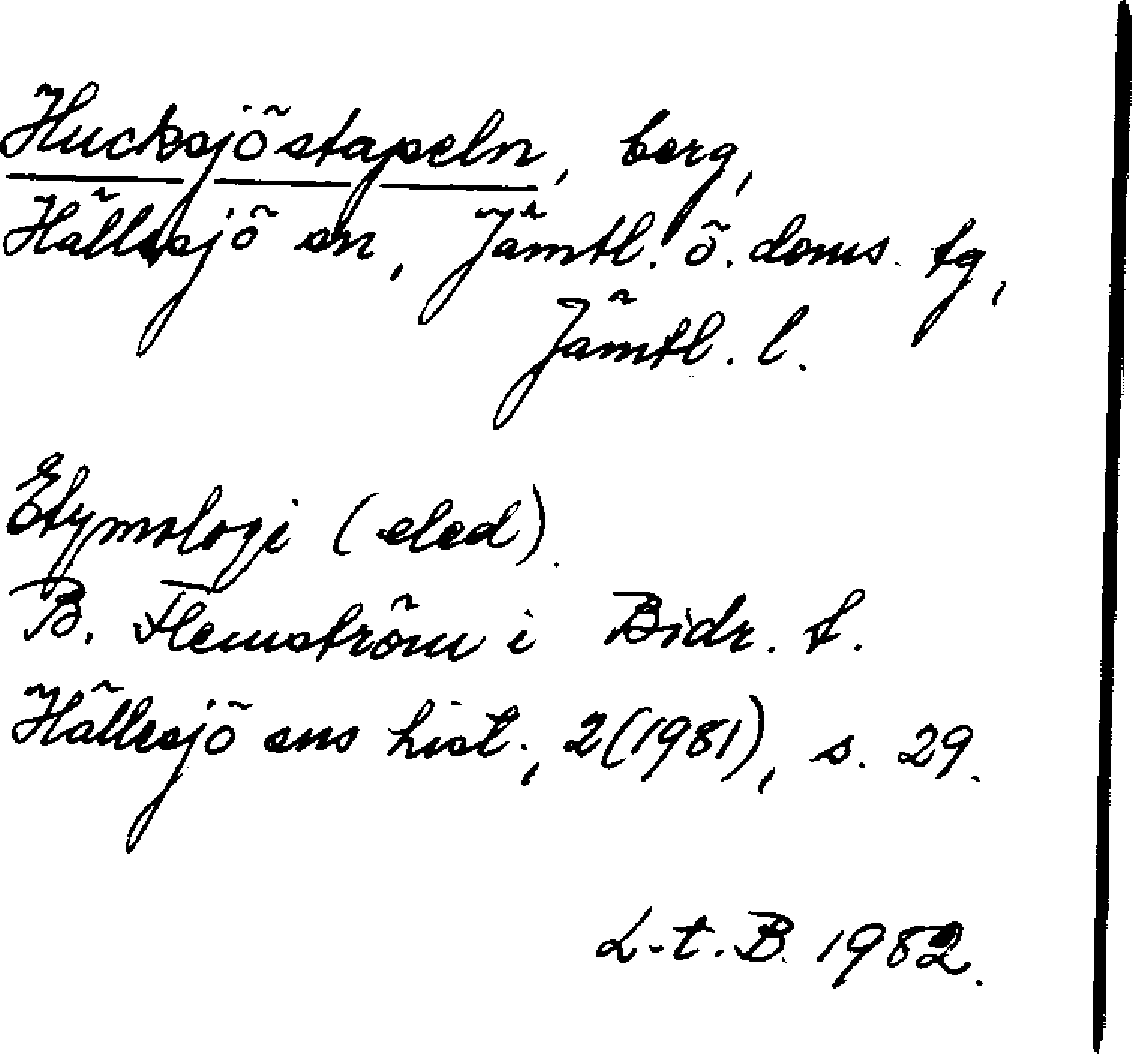 Hucksjöstapeln, berg,
Hällesjö sn, Jämtl. ö. doms. tg,
Jämtl. l.
Etymologi (eled).
B. Flemström i Bidr. t.
Hällesjö sns hist., 2(1981), s. 29.
L-t. B. 1982.